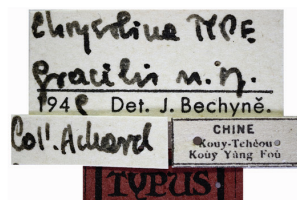 Chrysolina TYPE
gracilis n. sp.
194 Det. J. Bechynĕ.
Coll. Achard
CHINE
Kouy-Tchéou
Kouy Yâng Foù
TYPUS